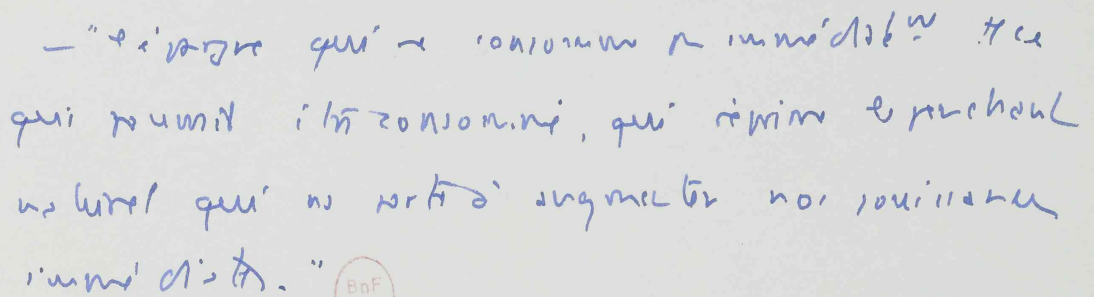 — "l'épargne qui ne consomme pas immédiatt tt ce
qui pourrait être consommé, qui réprime le penchant
naturel qui ns porte à augmenter nos jouissances
immédiates."
BnF